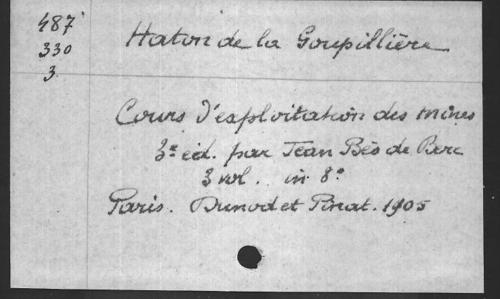 487
Haton de la Goupillière
330
3.
Cours d'exploitation des mines
3e éd. par Jean Bès de Berc
3 vol. in 8°
Paris. Dunod et Pinat. 1905